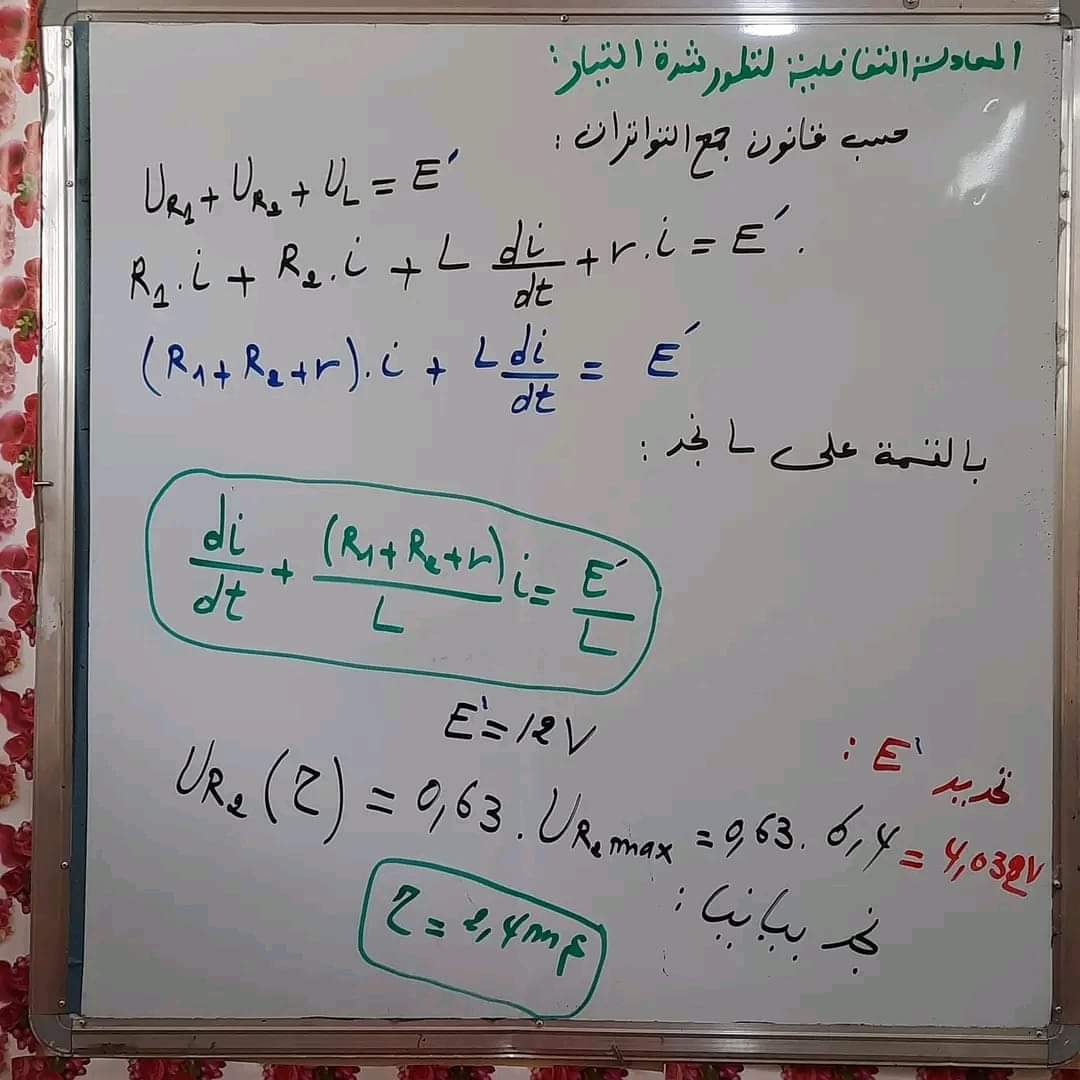 المعادلة التفاضلية لتطور شدة التيار:
حسب قانون جمع التواترات:
U_R1 + U_R2 + U_L = E'
R1.i + R2.i + L di/dt + r.i = E'.
(R1+R2+r).i + L di/dt = E'
بالقسمة على L نجد:
di/dt + (R1+R2+r)/L i = E'/L
E' = 12V
تحديد E':
U_R2(τ) = 0,63 . U_R2max = 0,63. 6,4 = 4,032V
نجد بيانيا:
τ = 2,4ms